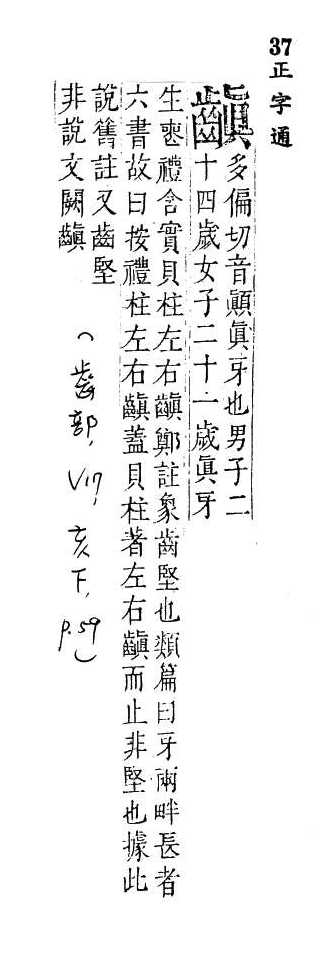 37正字通
齻
多偏切音顚眞牙也男子二
十四歲女子二十一歲眞牙
生喪禮含實貝柱左右齻鄭註象齒堅也類篇曰牙兩畔長者
六書故曰按禮柱左右齻蓋貝柱著左右齻而止非堅也據此
說舊註又齒堅
非說文闕齻
(齒部, V17, 亥下, p.59)